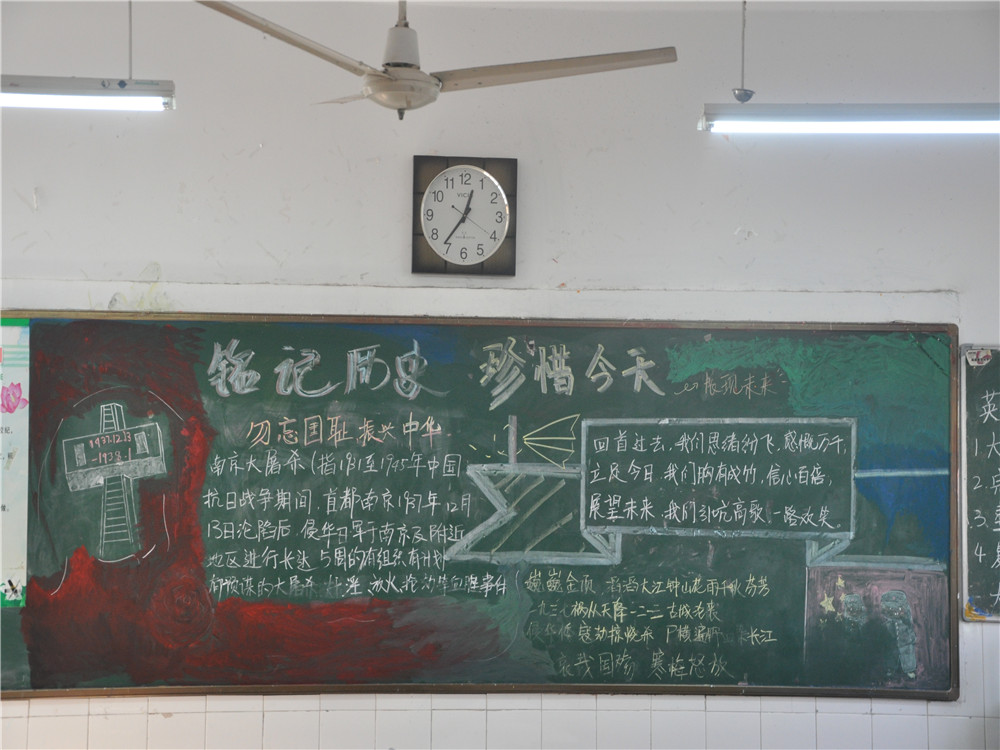 12 1 2 3 4 5 6 7 8 9 10 11
铭记历史 珍惜今天
展现未来
勿忘国耻 振兴中华
1937.12.13
-1938.1
南京大屠杀(指1931至1945年中国
抗日战争期间,首都南京1937年12月
13日沦陷后,侵华日军于南京及附近
地区进行长达 的有组织有计划
有预谋的大屠杀 奸淫 放火抢 等血腥事件
回首过去,我们思绪纷飞,感慨万千,
立足今日,我们胸有成竹,信心百倍,
展望未来,我们引吭高歌 一路欢笑
巍巍金陵 滔滔大江 钟山花雨千秋芬芳
一九三七 祸从天降 一二一三 古城
长江
哀我国殇
英
1.
2.
3.
4